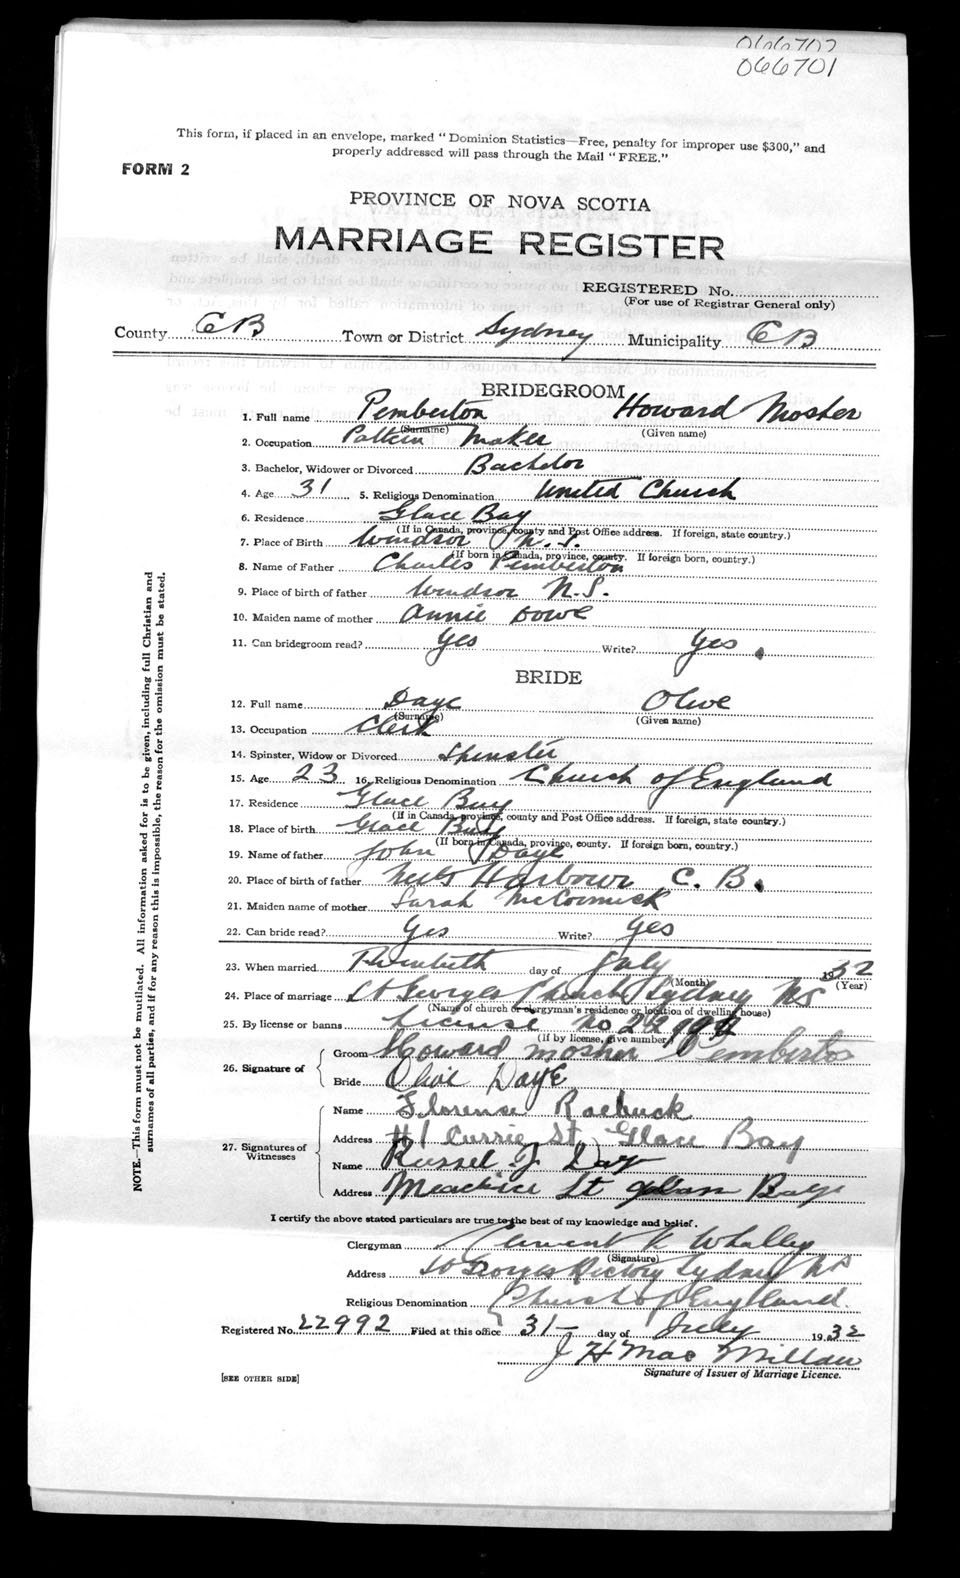 066702
066701
This form, if placed in an envelope, marked "Dominion Statistics—Free, penalty for improper use $300," and
properly addressed will pass through the Mail "FREE."
FORM 2
PROVINCE OF NOVA SCOTIA
MARRIAGE REGISTER
REGISTERED No.
(For use of Registrar General only)
County CB Town or District Sydney Municipality CB
BRIDEGROOM
1. Full name Pemberton Howard Mosher
(Surname) (Given name)
2. Occupation Pattern Maker
3. Bachelor, Widower or Divorced Bachelor
4. Age 31 5. Religious Denomination United Church
6. Residence Glace Bay
(If in Canada, province, county and Post Office address. If foreign, state country.)
7. Place of Birth Windsor N.S.
(If born in Canada, province, county. If foreign born, country.)
8. Name of Father Charles Pemberton
9. Place of birth of father Windsor N.S.
10. Maiden name of mother Annie Dowe
11. Can bridegroom read? Yes Write? Yes.
BRIDE
12. Full name Daye Olive
(Surname) (Given name)
13. Occupation Clerk
14. Spinster, Widow or Divorced Spinster
15. Age 23 16. Religious Denomination Church of England
17. Residence Glace Bay
(If in Canada, province, county and Post Office address. If foreign, state country.)
18. Place of birth Glace Bay
(If born in Canada, province, county. If foreign born, country.)
19. Name of father John Daye
20. Place of birth of father Neils Harbour C. B.
21. Maiden name of mother Sarah McCormick
22. Can bride read? Yes Write? Yes
23. When married day of July 1932
(Month) (Year)
24. Place of marriage St Georges Church Sydney NS
(Name of church or clergyman's residence or location of dwelling house)
25. By license or banns License no 22992
(If by license, give number)
26. Signature of
Groom Howard Mosher Pemberton
Bride Olive Daye
27. Signatures of
Witnesses
Name Florense Roebuck
Address #1 Currie St Glace Bay
Name Russel J. Day
Address St Bay
I certify the above stated particulars are true to the best of my knowledge and belief.
Clergyman Clement W Whalley
(Signature)
Address St Georges Rectory Sydney NS
Religious Denomination Church of England.
Registered No. 22992 Filed at this office 31- day of July 1932
J H MacMillan
Signature of Issuer of Marriage Licence.
[SEE OTHER SIDE]
NOTE.—This form must not be mutilated. All information asked for is to be given, including full Christian and
surnames of all parties, and if for any reason this is impossible, the reason for the omission must be stated.